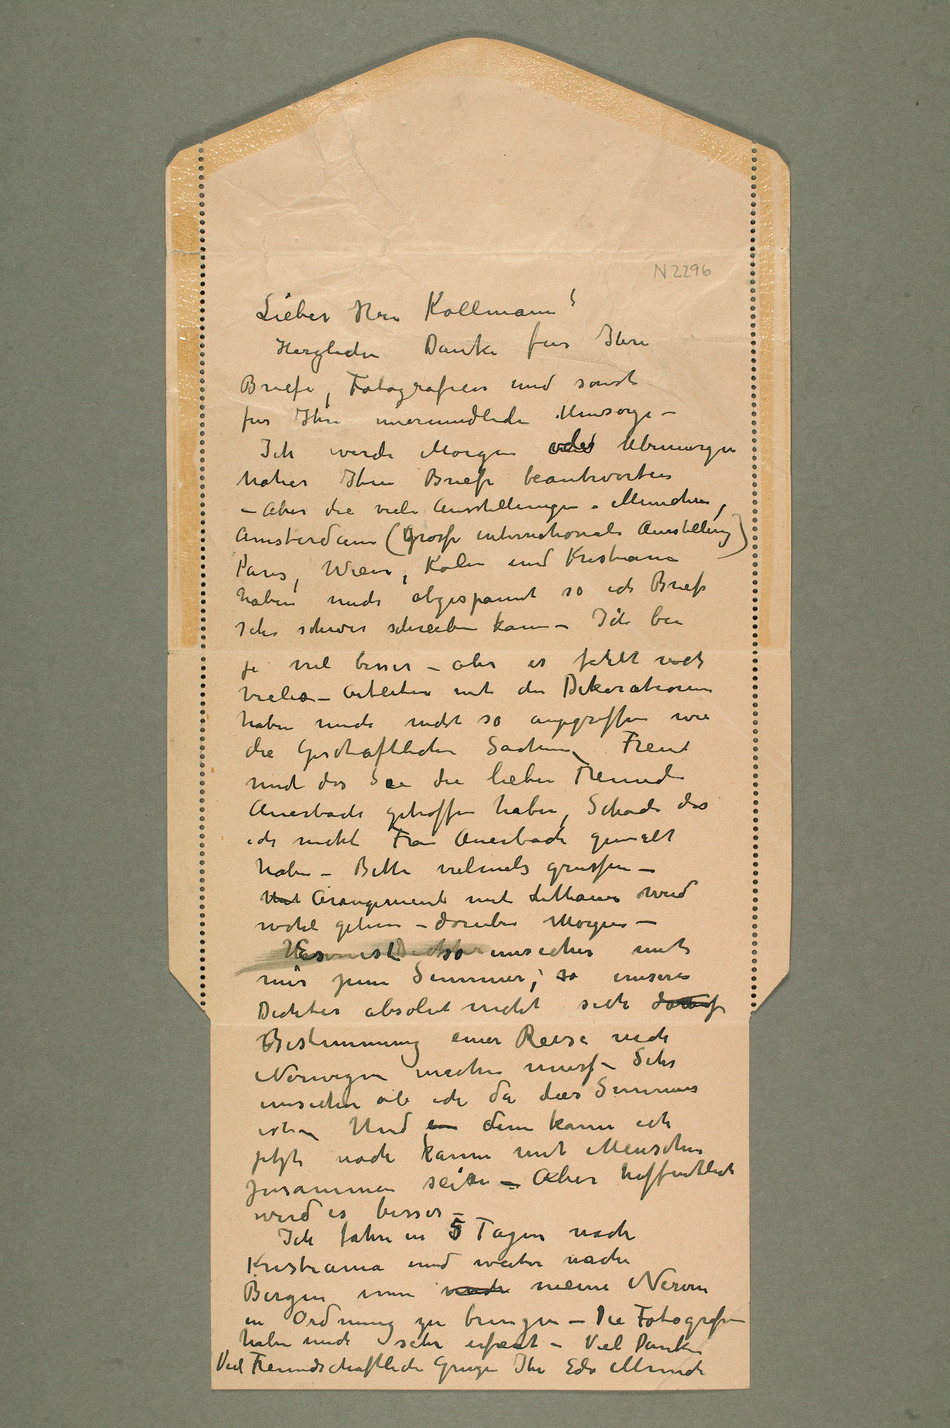 N 2296
Lieber Herr Kollmann!
Herzlichen Danke fur Ihre
Briefe, Fotografien und sonst
fur Ihre unermudliche Umsorge –
Ich werde Morgen oder Ubermorgen
naher Ihre Briefe beantworten
– Aber die viele Ausstellungen – Munchen,
Amsterdam (Grosse internationale Ausstellung)
Paris, Wien, Køln und Kristiania
haben mich abgespannt so ich Briefe
sehr schwer schreiben kann – Ich bin
ja viel besser – aber es fehlt noch
vieles – Arbeiten mit den Dekorationen
haben mich nicht so angegriffen wie
die Geschaftlichen Sachen, Freut
mich das Sie die lieben Freunde
Auerbach getroffen haben, Schade das
ich nicht Frau Auerbach gemalt
habe – Bitte vielmals grussen –
Mit Arangement mit Lithauer wird
wohl gehen – daruber Morgen –
so unsicher mit
mir zum Sommer; so unsere
Dichter absolut nicht sich darauf
Bestimmung einer Reise nach
Norwegen machen muss – Sehr
unsicher ob ich da das Sommer
ist – Und dem kann ich
jetzt noch kaum mit Menschen
zusammen sein – Aber hoffentlich
wird es besser –
Ich fahre in 5 Tagen nach
Kristiania und weiter nach
Bergen um nach meine Nerven
in Ordnung zu bringen – Die Fotografien
haben mich sehr erfreut – Viel Danke
Viel Freundschaftliche Grusze Ihr Edv Munch